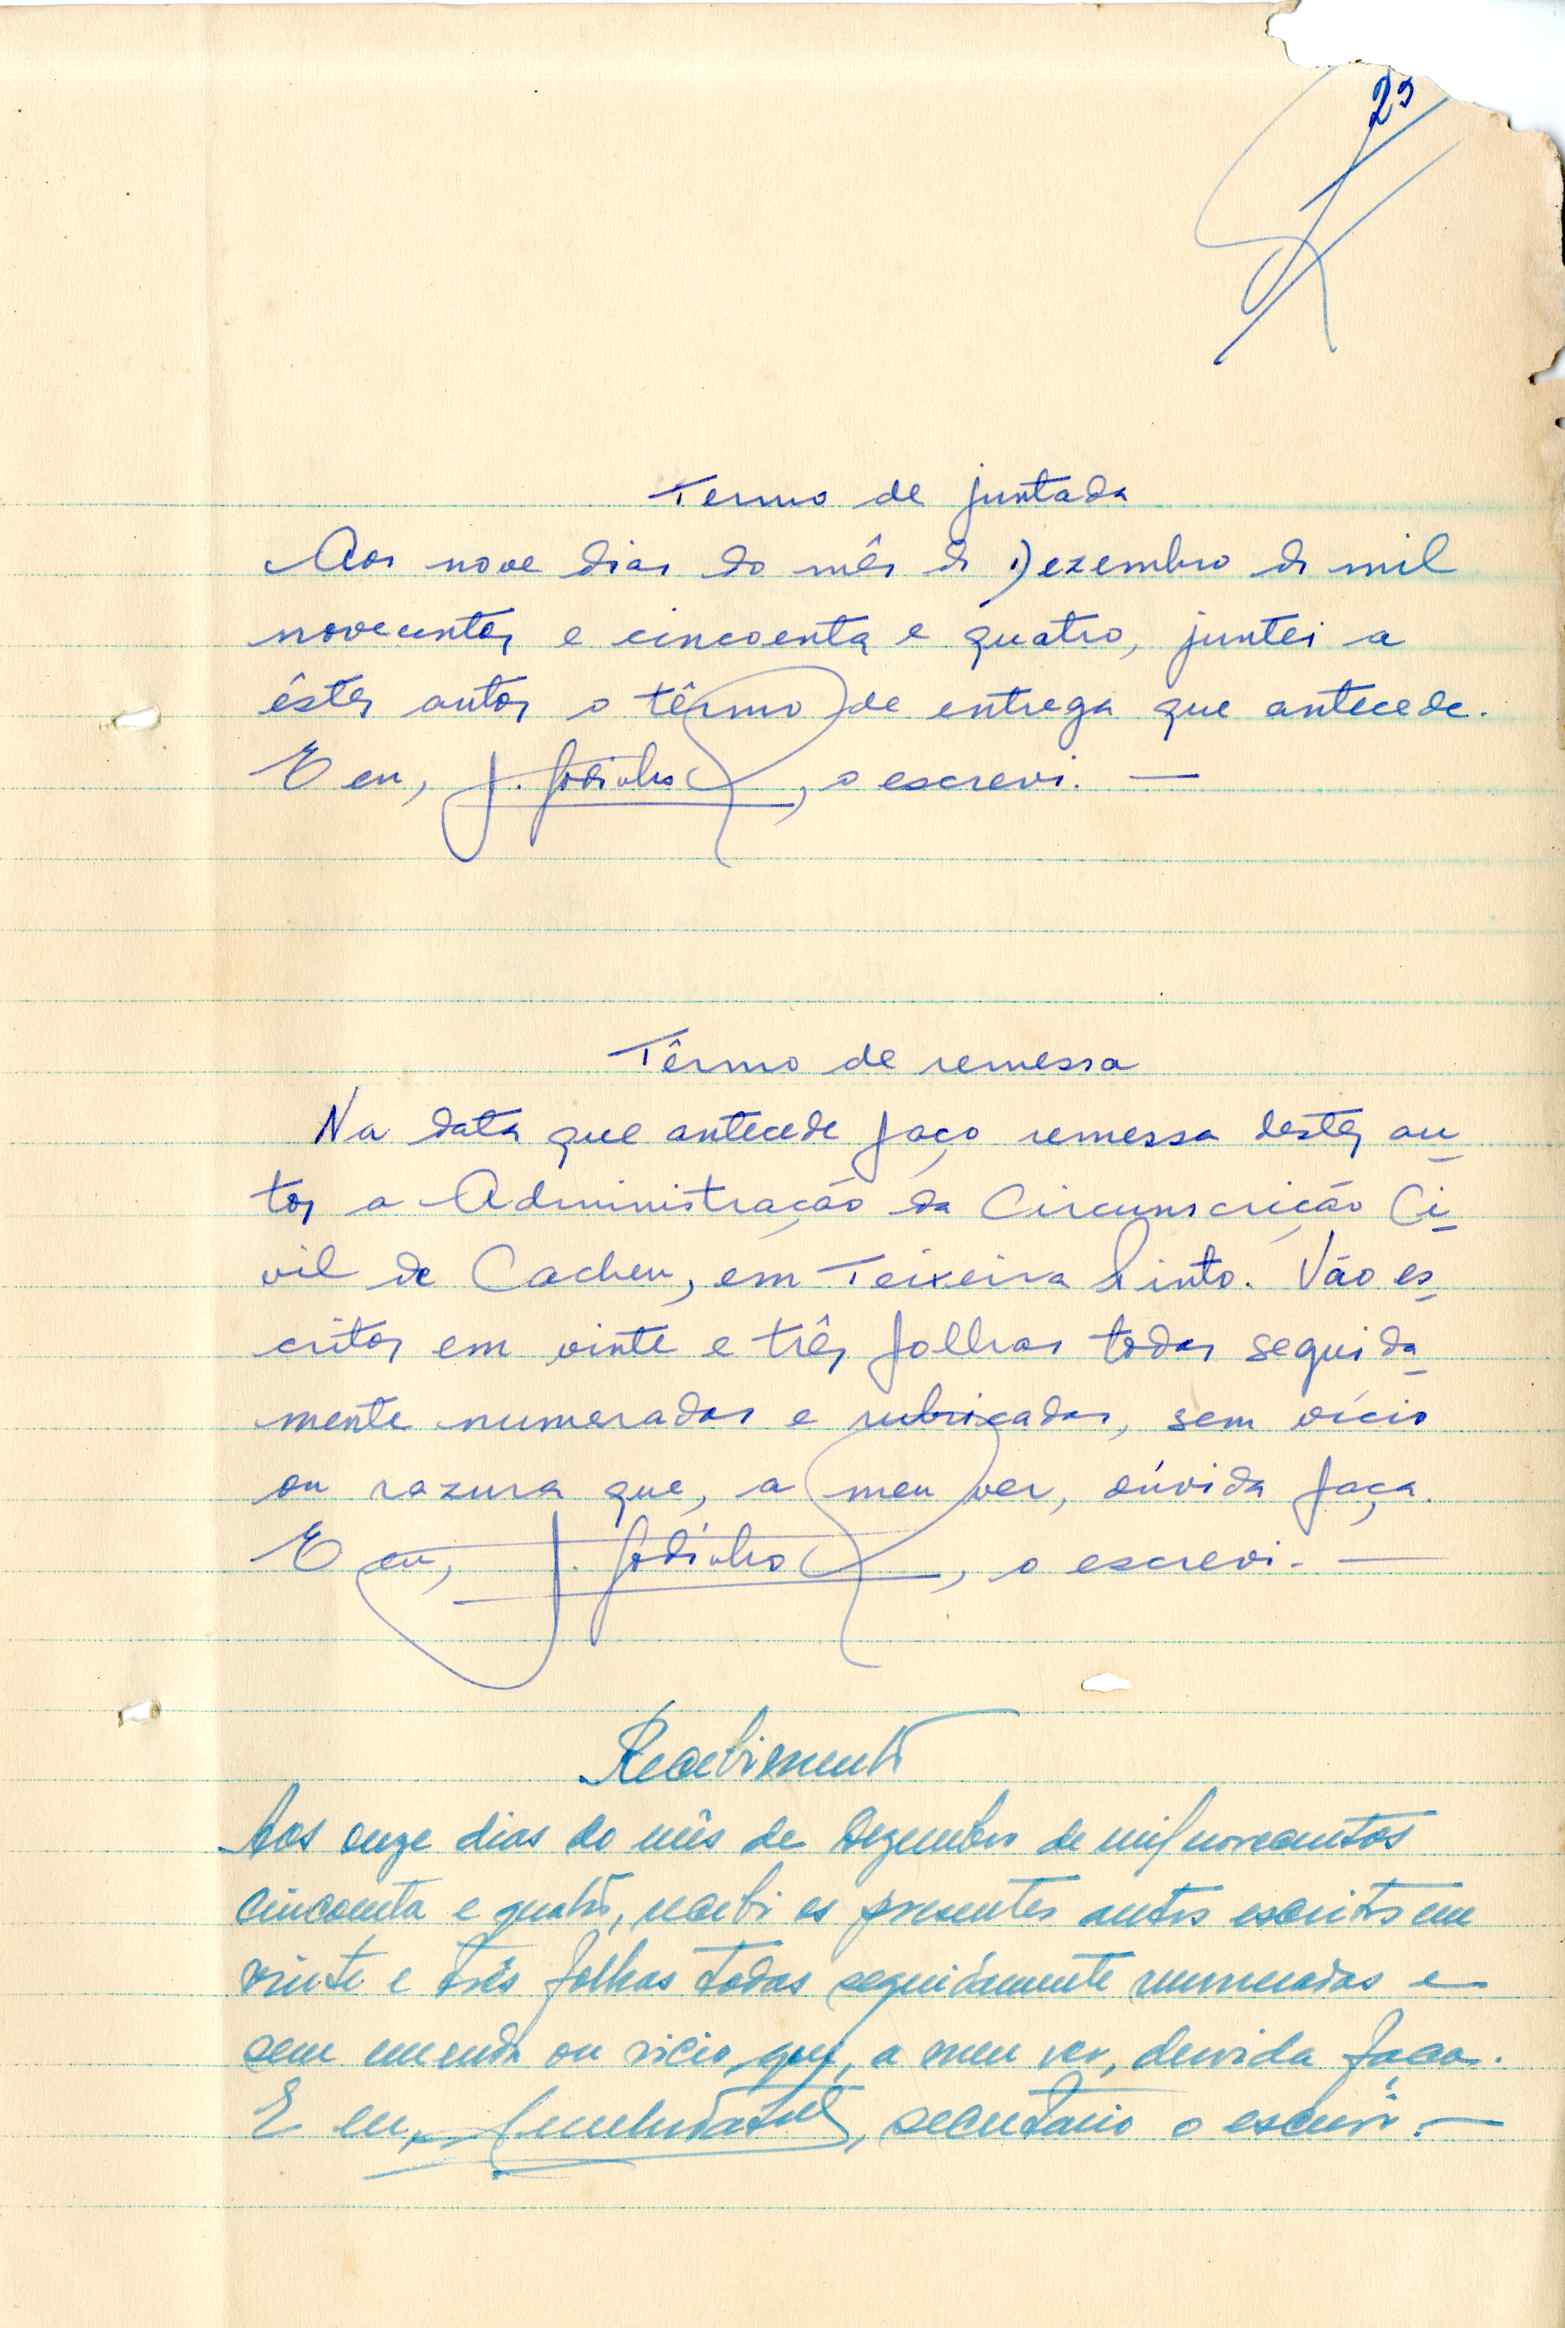 23
Termo de juntada
Aos nove dias do mês de Dezembro de mil
novecentos e cincoenta e quatro, juntei a
êstes autos o têrmo de entrega que antecede.
E eu, J. Godinho, o escrevi. —
Têrmo de remessa
Na data que antecede faço remessa destes au-
tos a Administração da Circunscrição Ci-
vil de Cacheu, em Teixeira Pinto. Vão es-
critos em vinte e três folhas todas seguida-
mente numeradas e rubricadas, sem vício
ou razura que, a meu ver, dúvida faça.
E eu, J. Godinho, o escrevi. —
Recebimento
Aos onze dias do mês de Dezembro de mil novecentos
cincoenta e quatro, recebi os presentes autos escritos em
vinte e três folhas todas seguidamente numeradas e
sem emenda ou vicio que, a meu ver, duvida faça.
E eu, secretario o escrevi. —